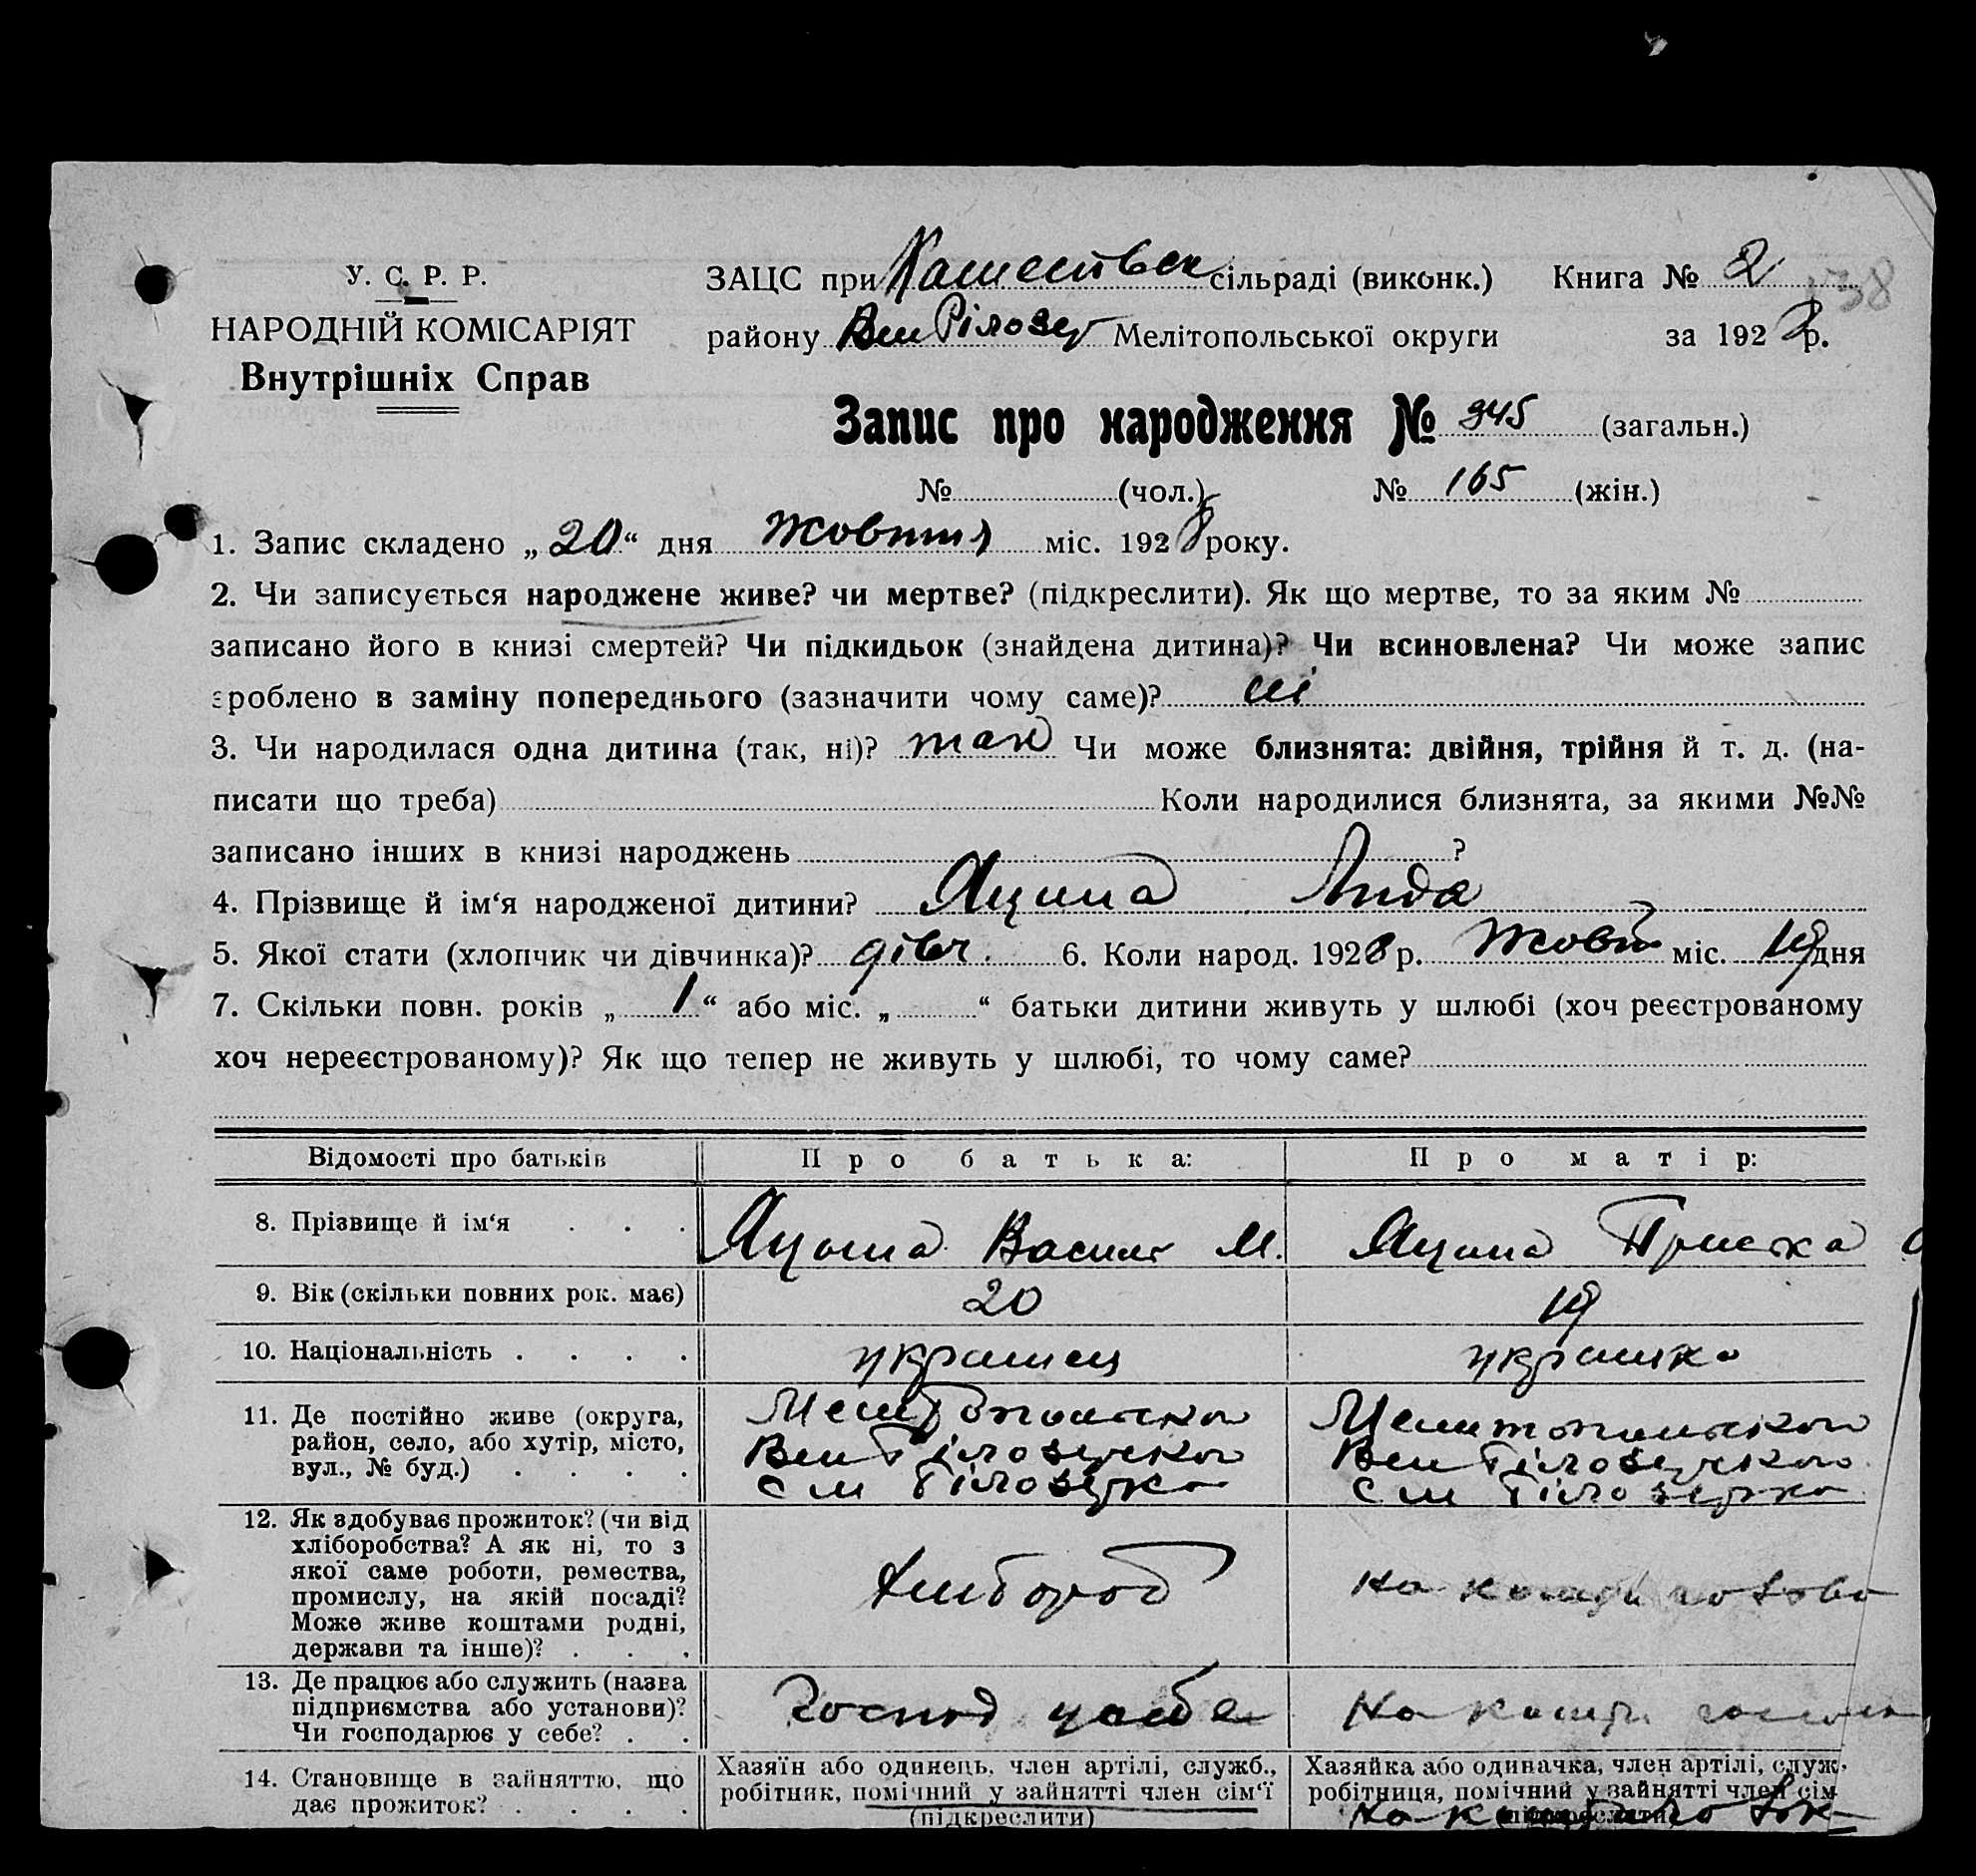 У. С. Р. Р.
НАРОДНІЙ КОМІСАРІЯТ
Внутрішніх Справ
ЗАЦС при сільраді (виконк.) Книга № 2
138
району Мелітопольської округи за 1928 р.
Запис про народження № 345 (загальн.)
№ (чол.) № 165 (жін.)
1. Запис складено „20“ дня Жовтня міс. 1928 року.
2. Чи записується народжене живе? чи мертве? (підкреслити). Як що мертве, то за яким №
записано його в книзі смертей? Чи підкидьок (знайдена дитина)? Чи всиновлена? Чи може запис
зроблено в заміну попереднього (зазначити чому саме)? ні
3. Чи народилася одна дитина (так, ні)? так Чи може близнята: двійня, трійня й т. д. (на-
писати що треба) Коли народилися близнята, за якими №№
записано інших в книзі народжень ?
4. Прізвище й ім‘я народженої дитини? Яцина Лида
5. Якої стати (хлопчик чи дівчинка)? дівч. 6. Коли народ. 1928 р. Жовт міс. 19 дня
7. Скільки повн. років „1“ або міс. „ “ батьки дитини живуть у шлюбі (хоч реєстрованому
хоч нереєстрованому)? Як що тепер не живуть у шлюбі, то чому саме?
Відомості про батьків Про батька: Про матір:
8. Прізвище й ім‘я . . . Яцина Василь М. Яцина Приська
9. Вік (скільки повних рок. має) 20 19
10. Національність . . . . українец українка
11. Де постійно живе (округа,
район, село, або хутір, місто,
вул., № буд.) . . . .
12. Як здобуває прожиток? (чи від
хліборобства? А як ні, то з
якої саме роботи, ремества,
промислу, на якій посаді?
Може живе коштами родні,
держави та інше)? . . .
Хлібороб
13. Де працює або служить (назва
підприємства або установи)?
Чи господарює у себе? . .
Господ у себе
14. Становище в зайняттю, що
дає прожиток? . . . .
Хазяїн або одинець, член артілі, служб.,
робітник, помічний у зайнятті член сім‘ї
(підкреслити)
Хазяйка або одиначка, член артілі, служ.
робітниця, помічний у зайнятті член сім
(підкреслити)